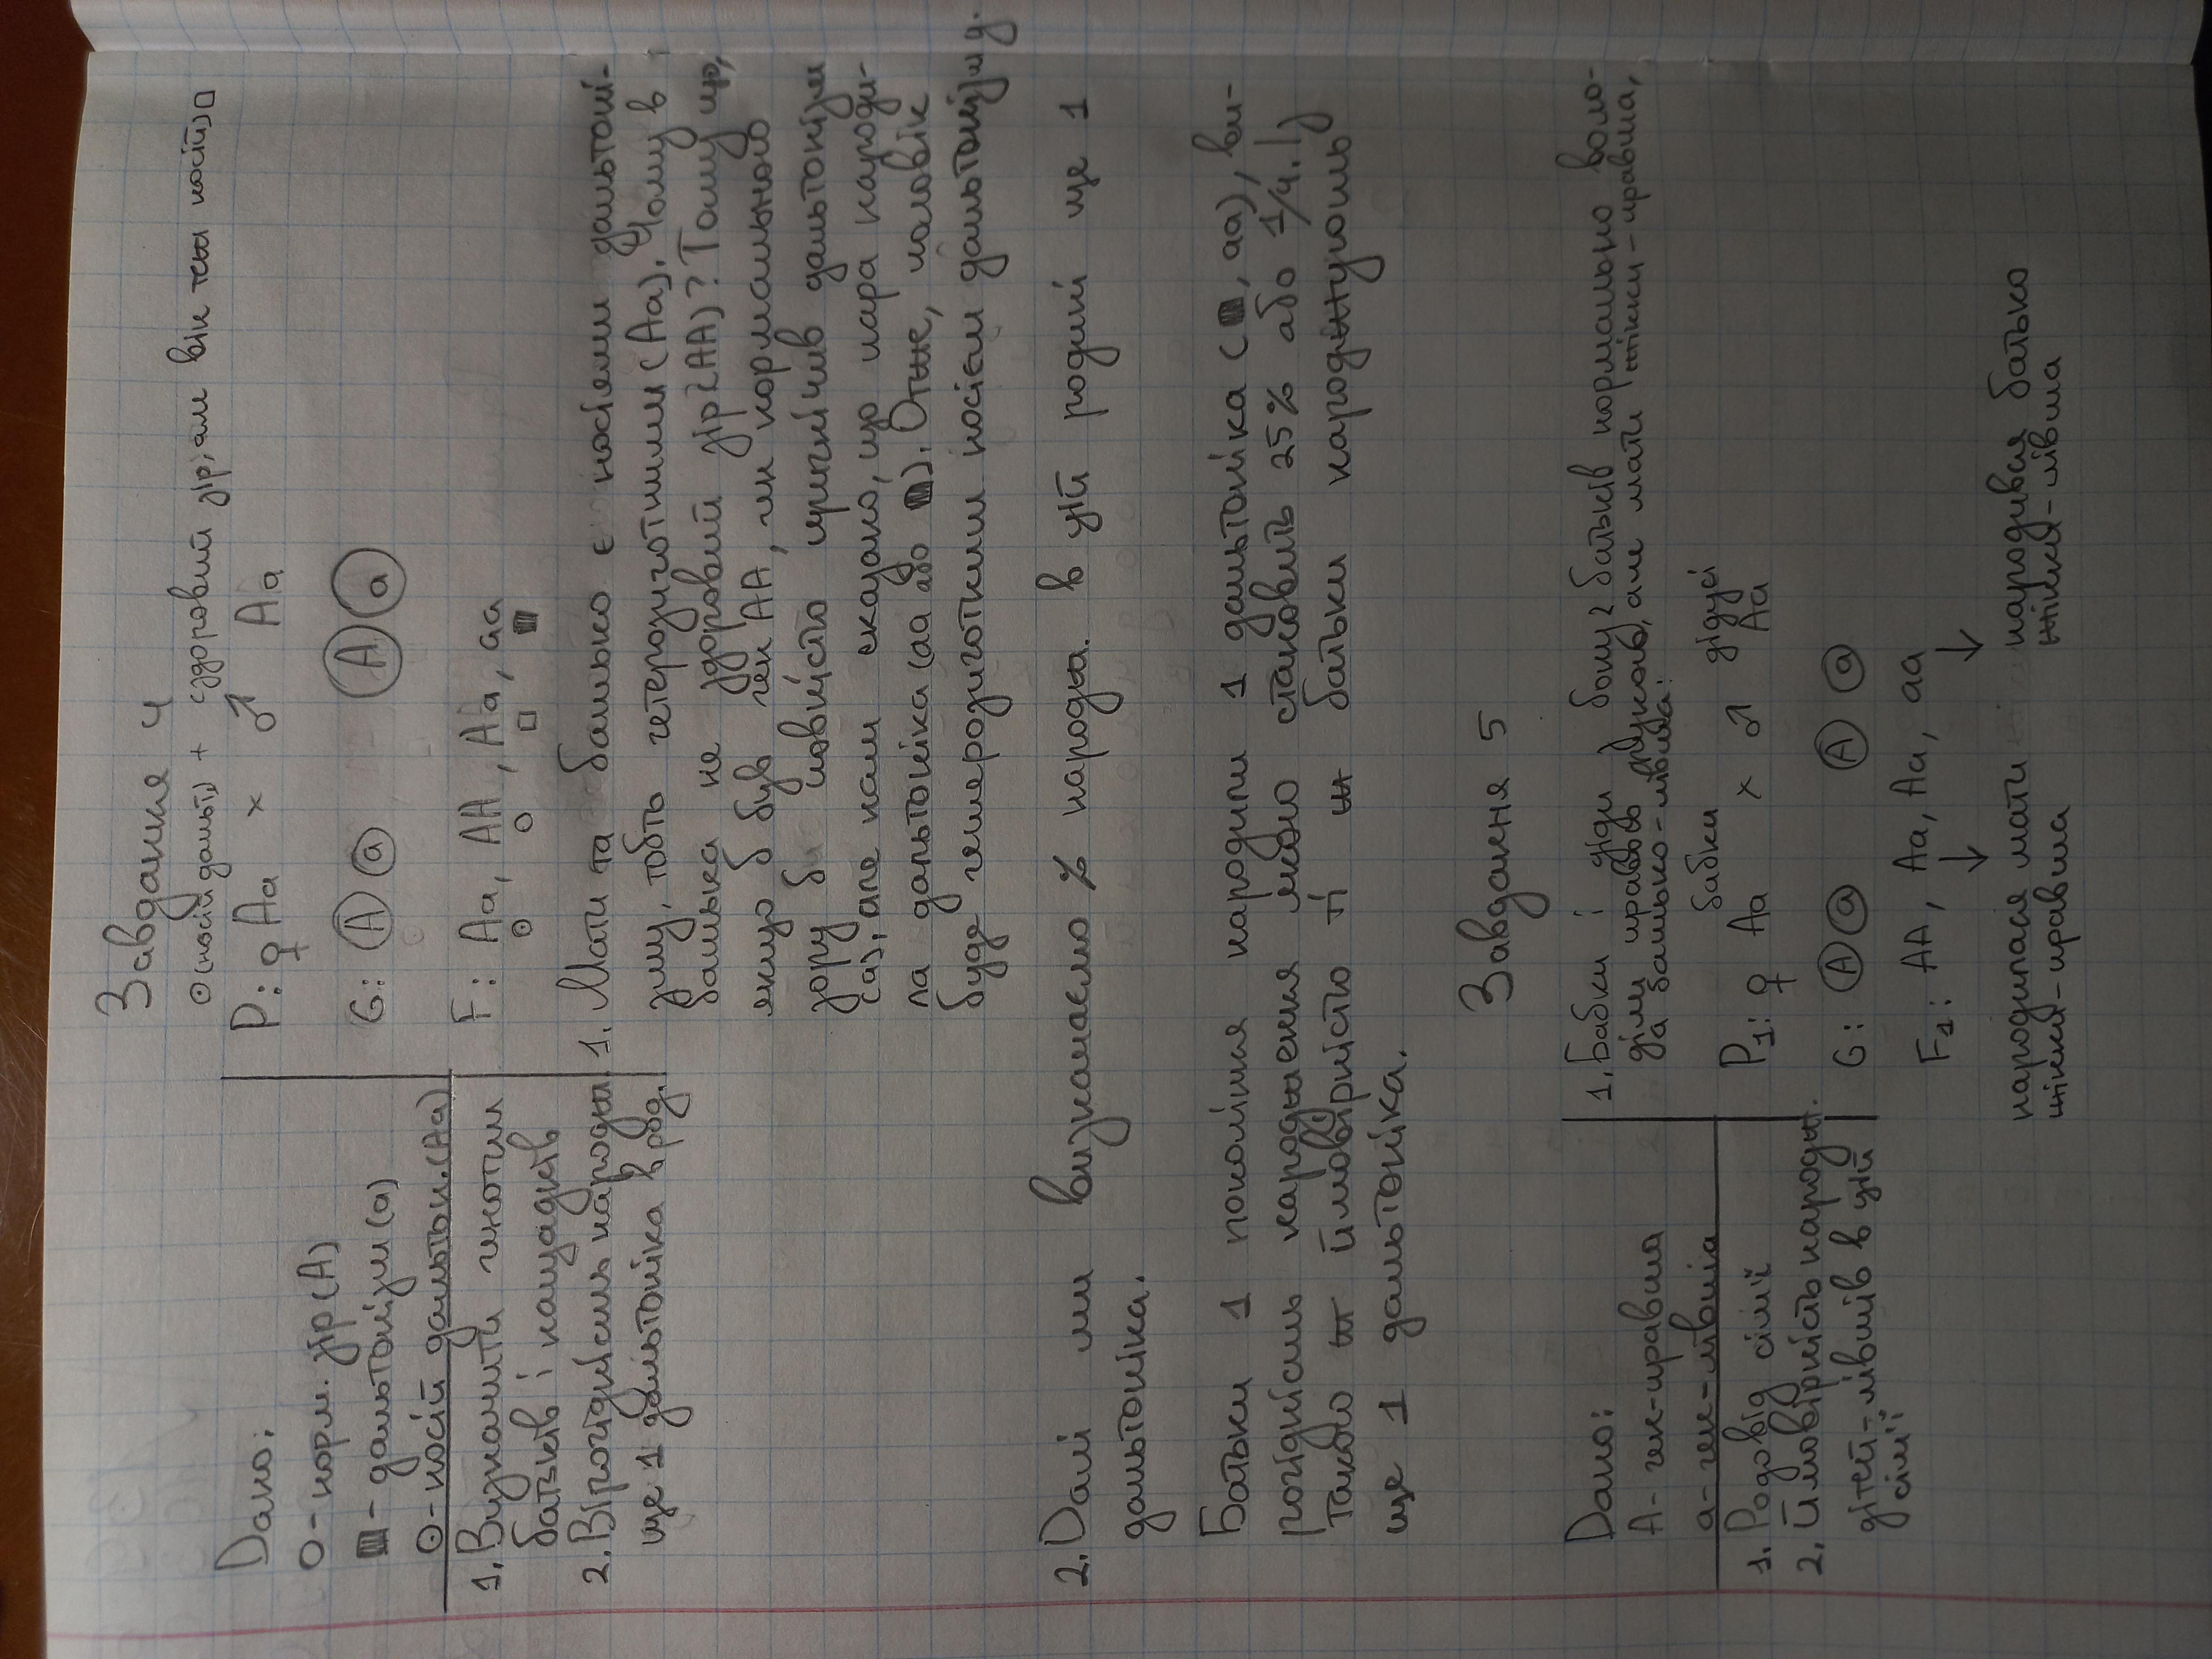 Завдання 4
(носій дальт.) + (здоровий зір, але він теж носій)
Дано:
P: ♀ Aa × ♂ Aa
O - норм. зір (A)
- дальтонізм (a)
G: A a A a
- носій дальтон. (Aa)
F: Aa, AA, Aa, aa
1. Визначити генотип
батьків і нащадків
2. Вірогідність народж.
ще 1 дальтоніка в род.
1. Мати та батько є носіями дальтоні-
зму, тобто гетерозиготними (Aa). Чому в
батька не здоровий зір (AA)? Тому що,
якщо б був ген AA, ген нормального
зору б повністю пригнічив дальтонізм
(a), але нам сказано, що пара народи-
ла дальтоніка (aa або ). Отже, чоловік
буде гетерозиготним носієм дальтонізму.
2. Далі ми визначаємо % народж. в цій родині ще 1
дальтоніка.
Батьки 1 покоління народили 1 дальтоніка ( , aa), ви-
рогідність народження якого становить 25% або 1/4. І з
такою ж ймовірністю ті ж батьки народжують
ще 1 дальтоніка.
Завдання 5
Дано:
A - ген - правша
a - ген - лівша
1. Родовід сім'ї
2. Ймовірність народж.
дітей - лівшів в цій
сім'ї
1. Бабки і діди з боку 2 батьків нормально воло-
діли правою рукою, але мати - правша,
а батько - лівша.
бабки дідусі
P1: ♀ Aa × ♂ Aa
G: A a A a
F1: AA, Aa, Aa, aa
↓ ↓
народилася мати народився батько
- правша - лівша